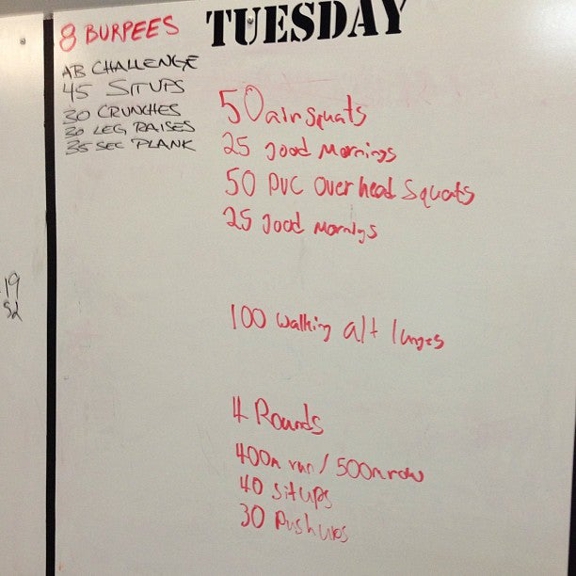 8 BURPEES
TUESDAY
AB CHALLENGE
45 SITUPS
30 CRUNCHES
30 LEG RAISES
35 SEC PLANK
50 air squats
25 good Mornings
50 PVC overhead Squats
25 good Mornings
100 walking alt lunges
4 Rounds
400m run / 500m row
40 situps
30 Pushups
19